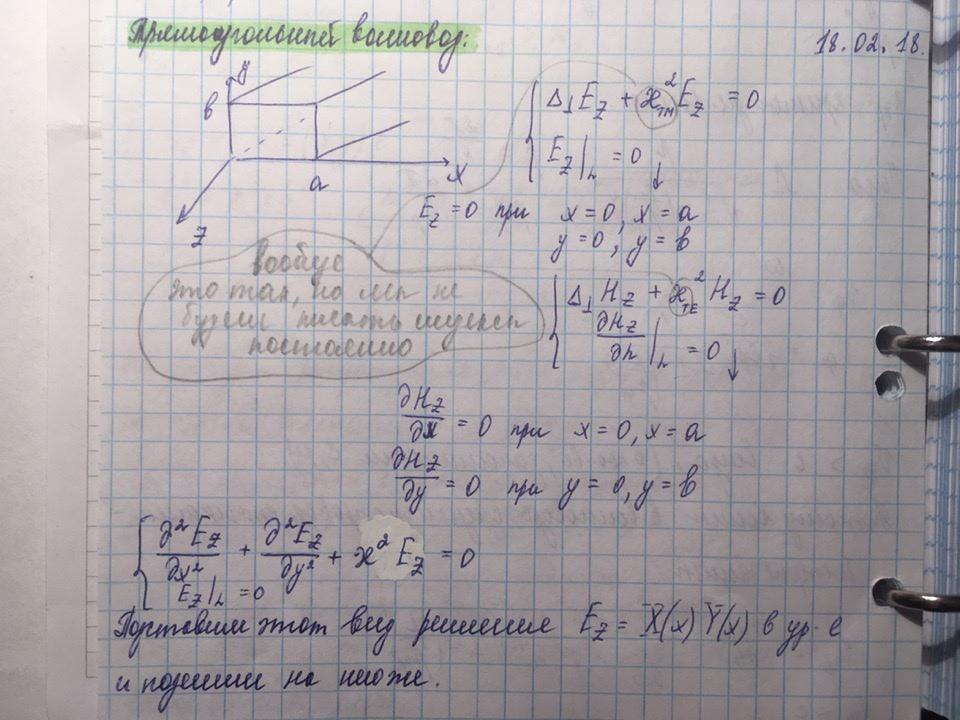 Прямоугольный волновод:
18.02.18.
y
в
a
x
z
Δ⊥E_z + ϰ²_TM E_z = 0
E_z|_L = 0 ↓
E_z = 0 при x=0, x=a
y=0, y=в
вообще
это так, но мы не
будем писать индексы
постоянно
Δ⊥H_z + ϰ²_TE H_z = 0
∂H_z/∂n|_L = 0 ↓
∂H_z/∂x = 0 при x=0, x=a
∂H_z/∂y = 0 при y=0, y=в
∂²E_z/∂x² + ∂²E_z/∂y² + ϰ² E_z = 0
E_z|_L = 0
Подставим этот вид решения E_z = X(x) Y(x) в ур-е
и поделим на него же.